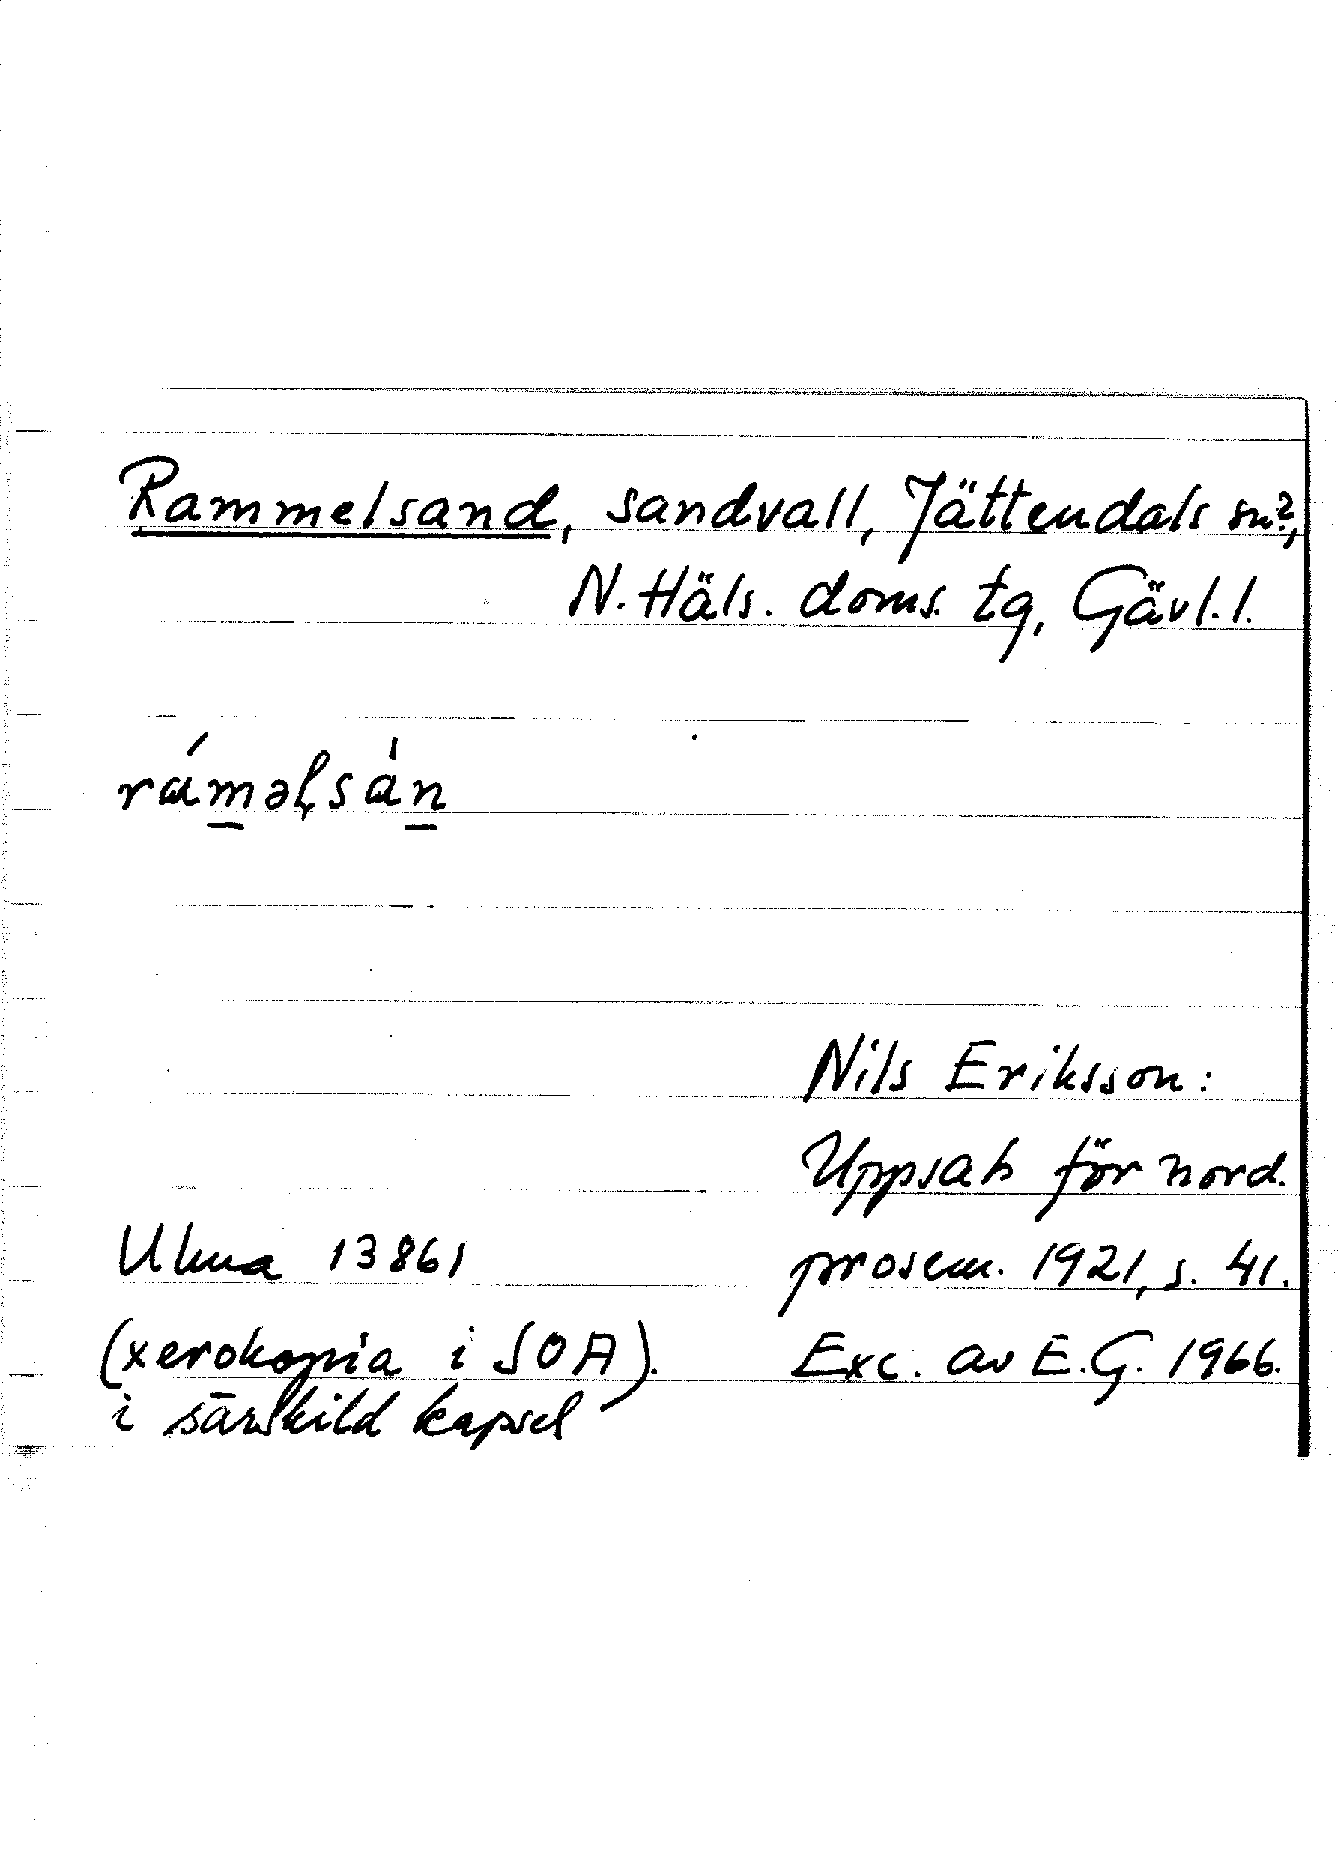 Rammelsand, sandvall, Jättendals sn?,
N. Häls. doms. tg, Gävl. l.
ráməl̦sán
Nils Eriksson:
Uppsats för nord.
Ulma 13861 prosem. 1921, s. 41.
(xerokopia i SOA). Exc. av E.G. 1966.
i särskild kapsel